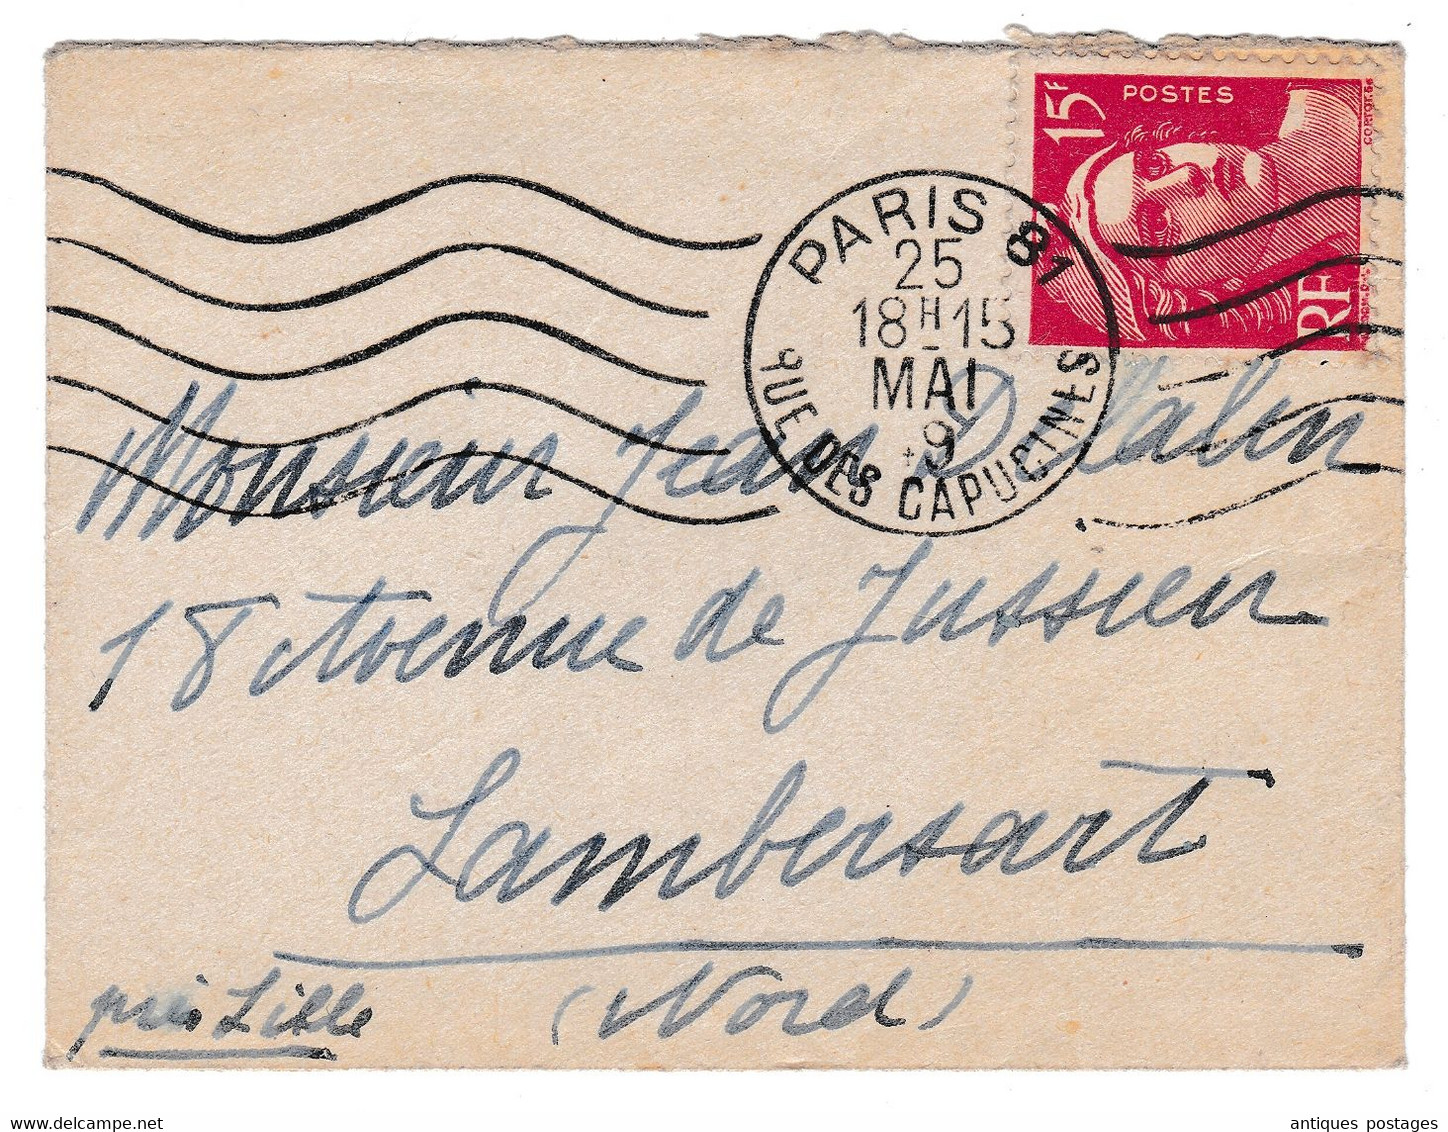 15F POSTES
RF
PARIS 81
25
18H-15
MAI
9
RUE DES CAPUCINES
Monsieur Jean
18 Avenue de Jussieu
Lambersart
près Lille (Nord)
www.delcampe.net
antiques postages